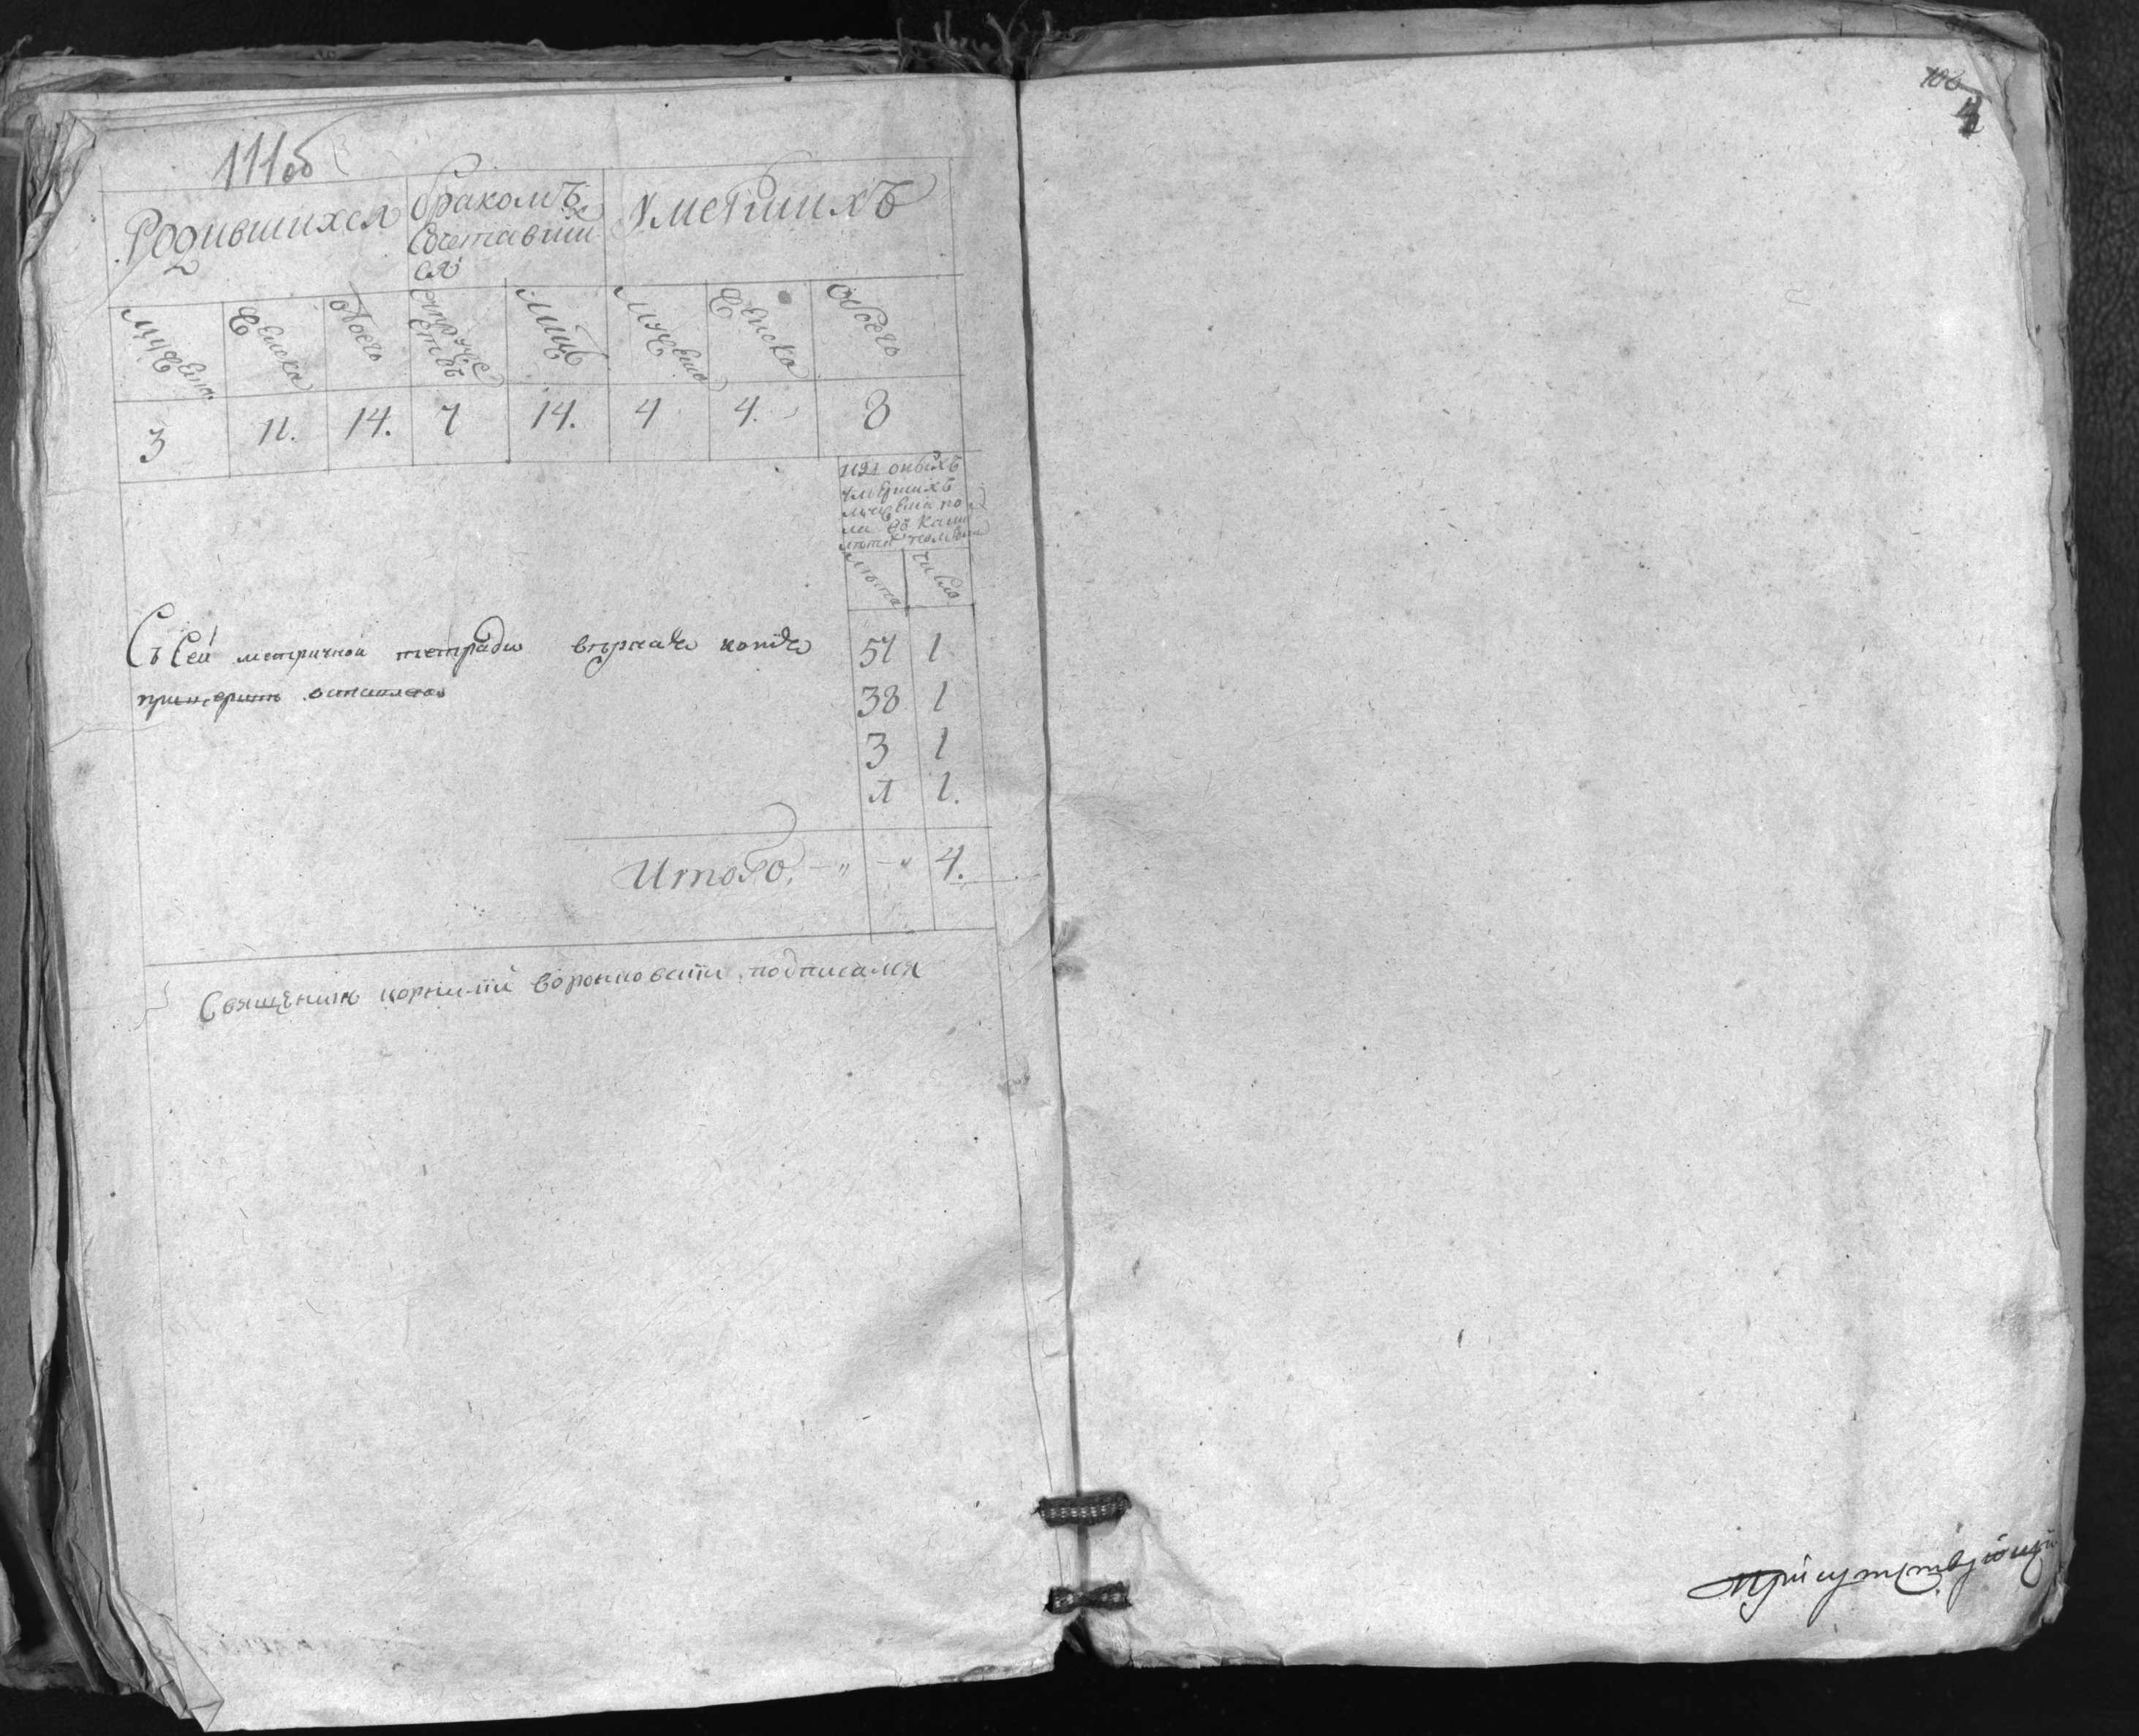 111об
Родившихся
бракомъ
Сочетавших
ся
Умерших̾ъ
мужеска
Женска
обоего
супруже
ствъ
лицъ
мужеска
Женска
обоего
3 11. 14. 7 14. 4 4. 8
изъ оныхъ
умершихъ
мужеска по
ла въ каки
лѣта числа
57 1
Съ Сей метричной тетради вѣрная копія
38 1
при церкви
3 1
1 1.
Итого, —„ —„ 4.
Священникъ корнилій воронковскій подписался
106
присутствующій